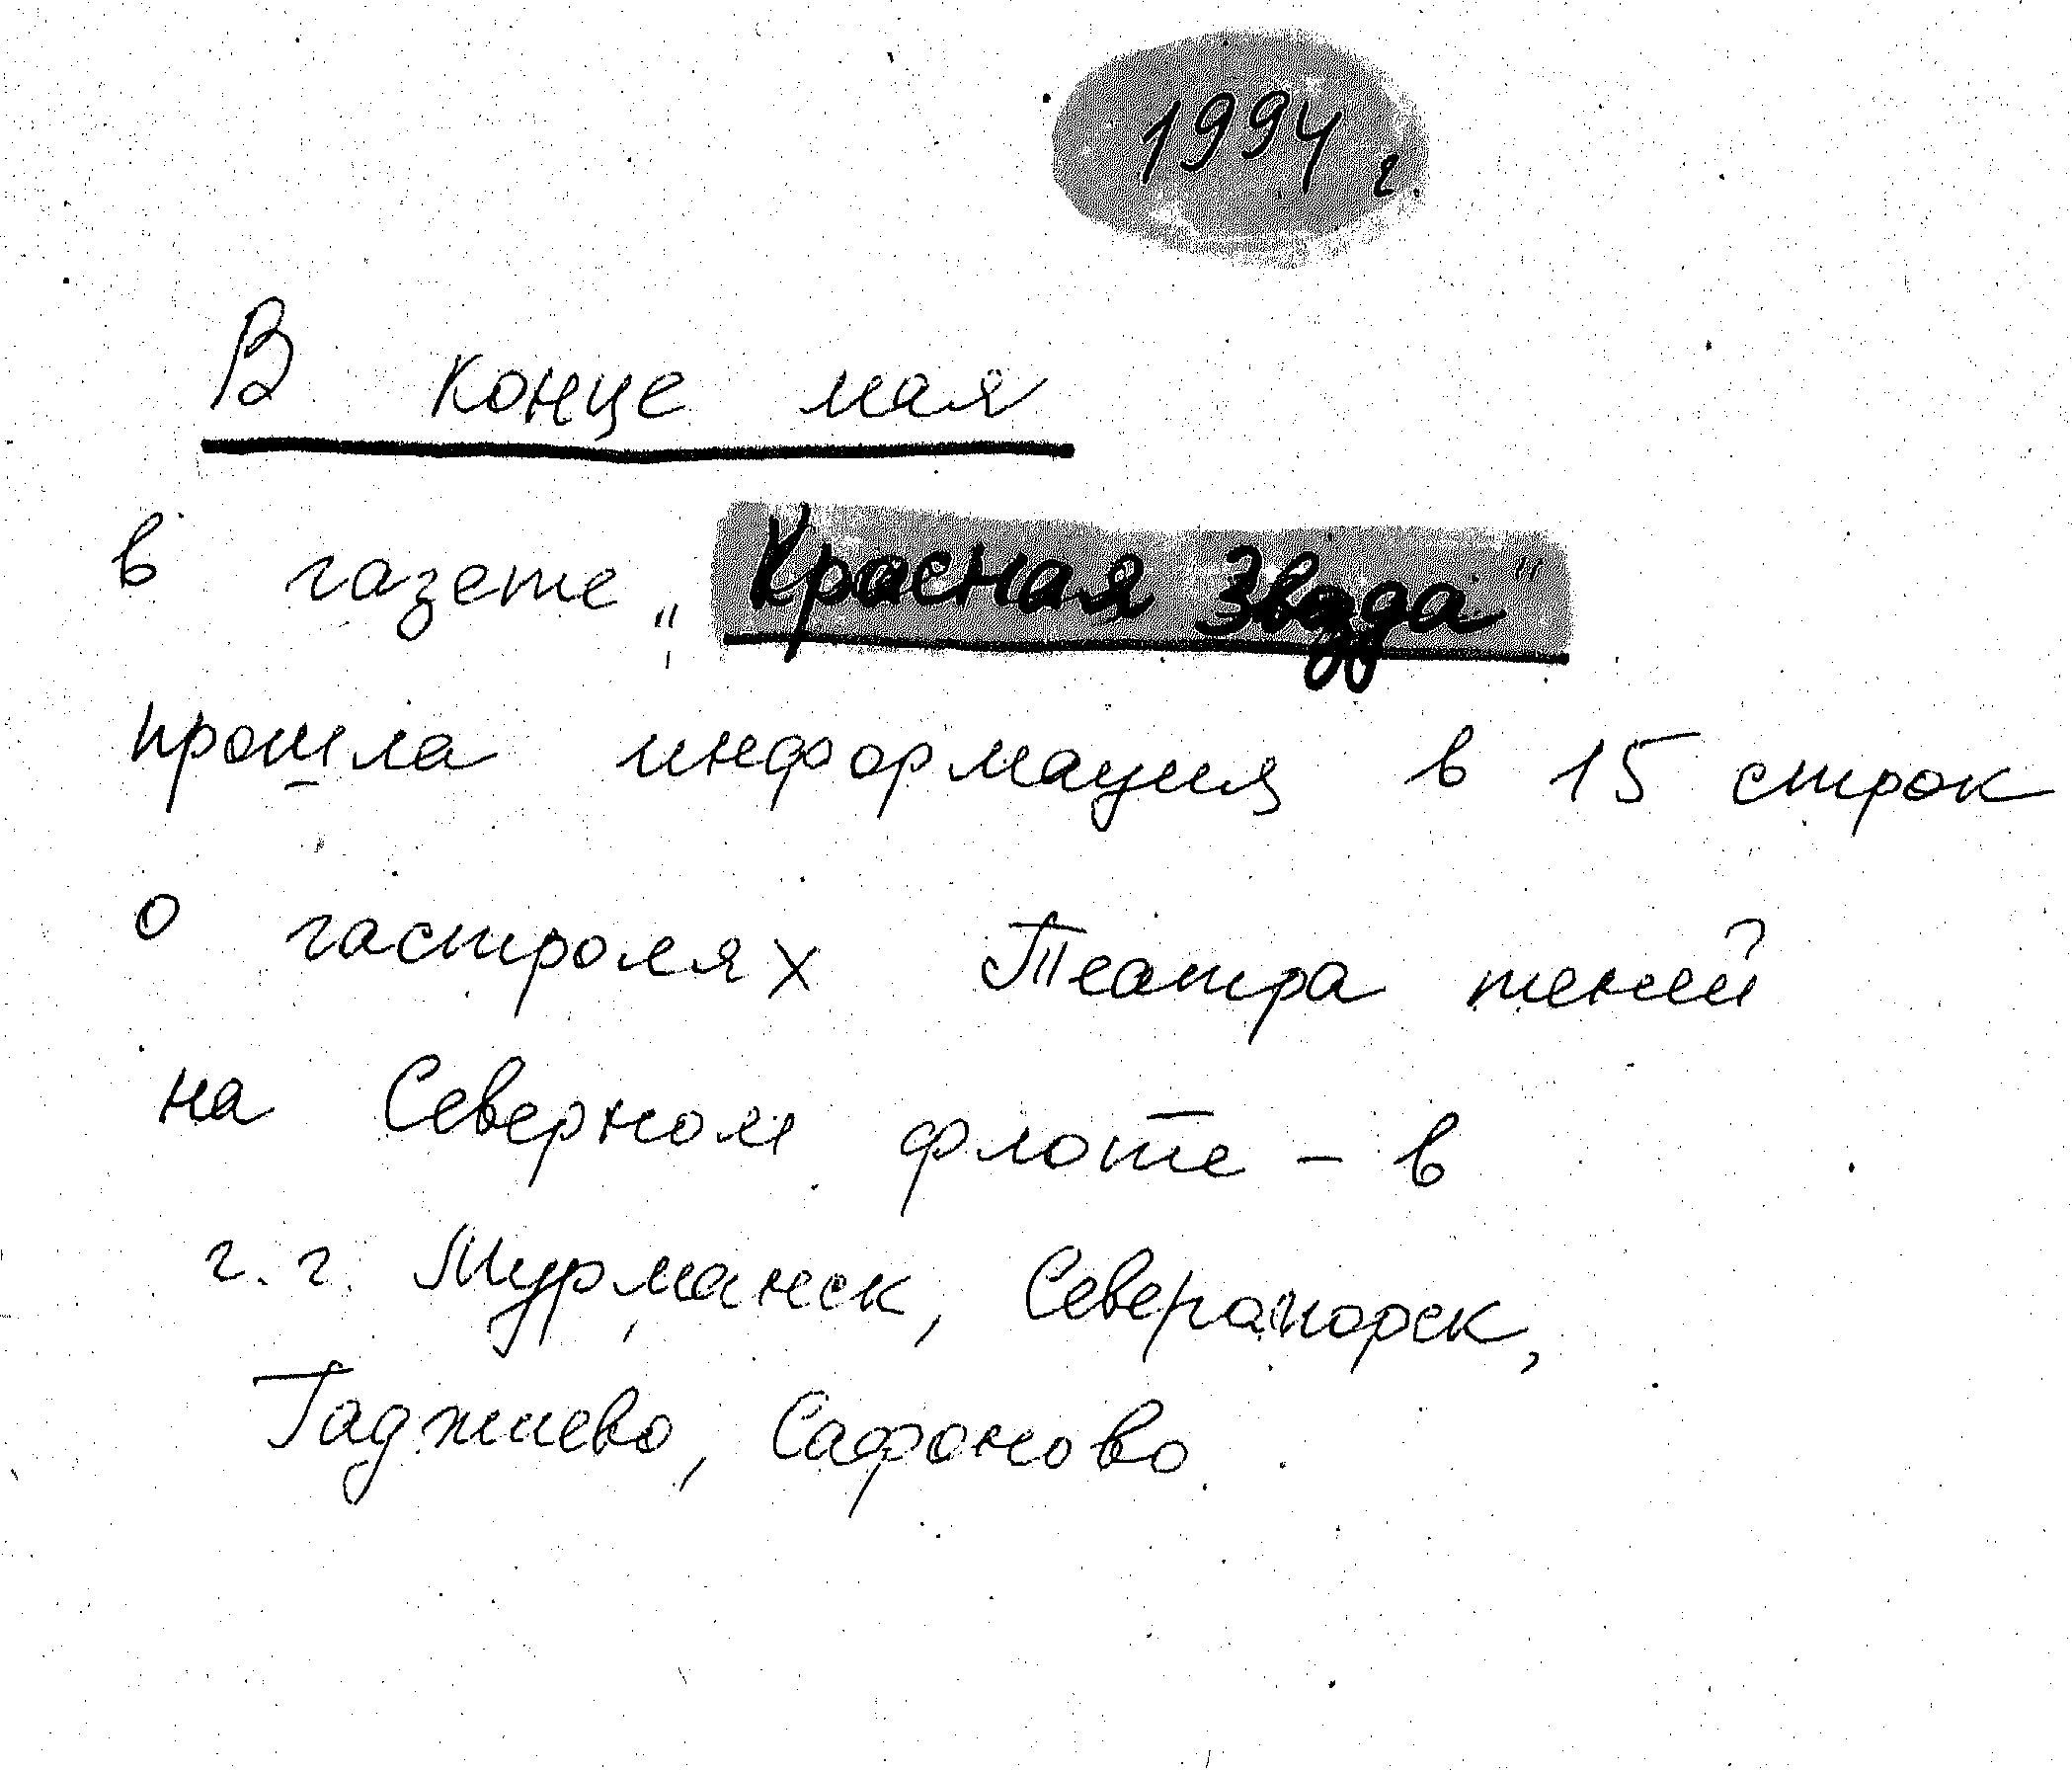 1994 г.
В конце мая
в газете „Красная Звезда"
прошла информация в 15 строк
о гастролях Театра теней
на Северном флоте - в
г.г. Мурманск, Североморск,
Гаджиево, Сафоново.